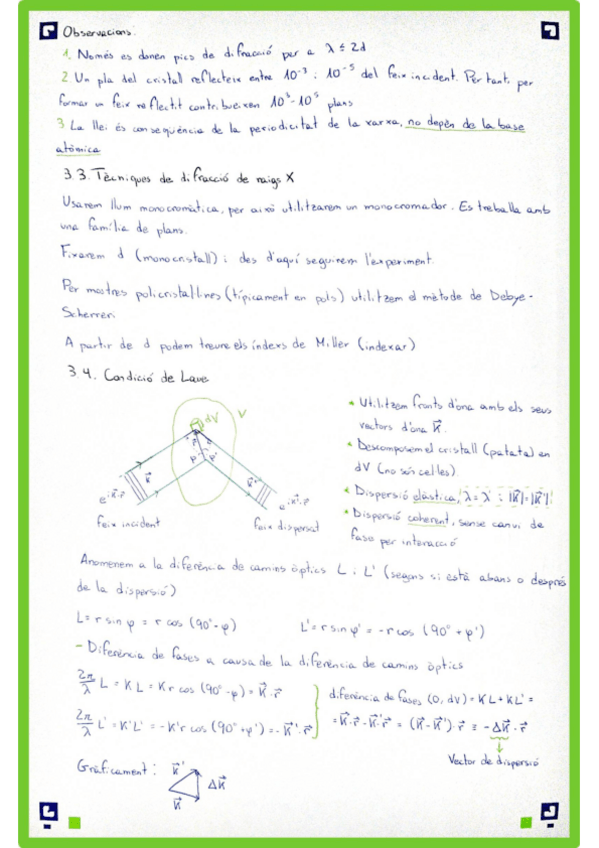 Observacions.
1. Només es donen pics de difracció per a λ ≤ 2d
2. Un pla del cristall reflecteix entre 10⁻³ i 10⁻⁵ del feix incident. Per tant, per
formar un feix reflectit contribueixen 10³-10⁵ plans
3. La llei és conseqüència de la periodicitat de la xarxa, no depèn de la base
atòmica
3.3. Tècniques de difracció de raigs X
Usarem llum monocromàtica, per això utilitzarem un monocromador. Es treballa amb
una família de plans.
Fixarem d (monocristall) i des d'aquí seguirem l'experiment.
Per mostres policristal·lines (típicament en pols) utilitzem el mètode de Debye-
Scherrer.
A partir de d podem treure els índexs de Miller (indexar)
3.4. Condició de Laue
dV
V
r
φ
φ'
K⃗
K⃗'
e^{iK⃗·r⃗}
feix incident
e^{iK⃗'·r⃗}
feix dispersat
* Utilitzem fronts d'ona amb els seus
vectors d'ona K⃗.
* Descomposem el cristall (patata) en
dV (no són cel·les)
* Dispersió elàstica, λ = λ' ; |K⃗|=|K⃗'|
* Dispersió coherent, sense canvi de
fase per interacció
Anomenem a la diferència de camins òptics L i L' (segons si està abans o després
de la dispersió)
L = r sin φ = r cos (90°-φ)
L' = r sin φ' = -r cos (90°+φ')
- Diferència de fases a causa de la diferència de camins òptics
2π/λ L = KL = Kr cos (90°-φ) = K⃗·r⃗
2π/λ' L' = K'L' = -K'r cos (90°+φ') = -K⃗'·r⃗
diferència de fases (0, dV) = KL + KL' =
= K⃗·r⃗ - K⃗'·r⃗ = (K⃗-K⃗')·r⃗ ≡ -ΔK⃗·r⃗
Vector de dispersió
Gràficament:
K⃗'
ΔK⃗
K⃗